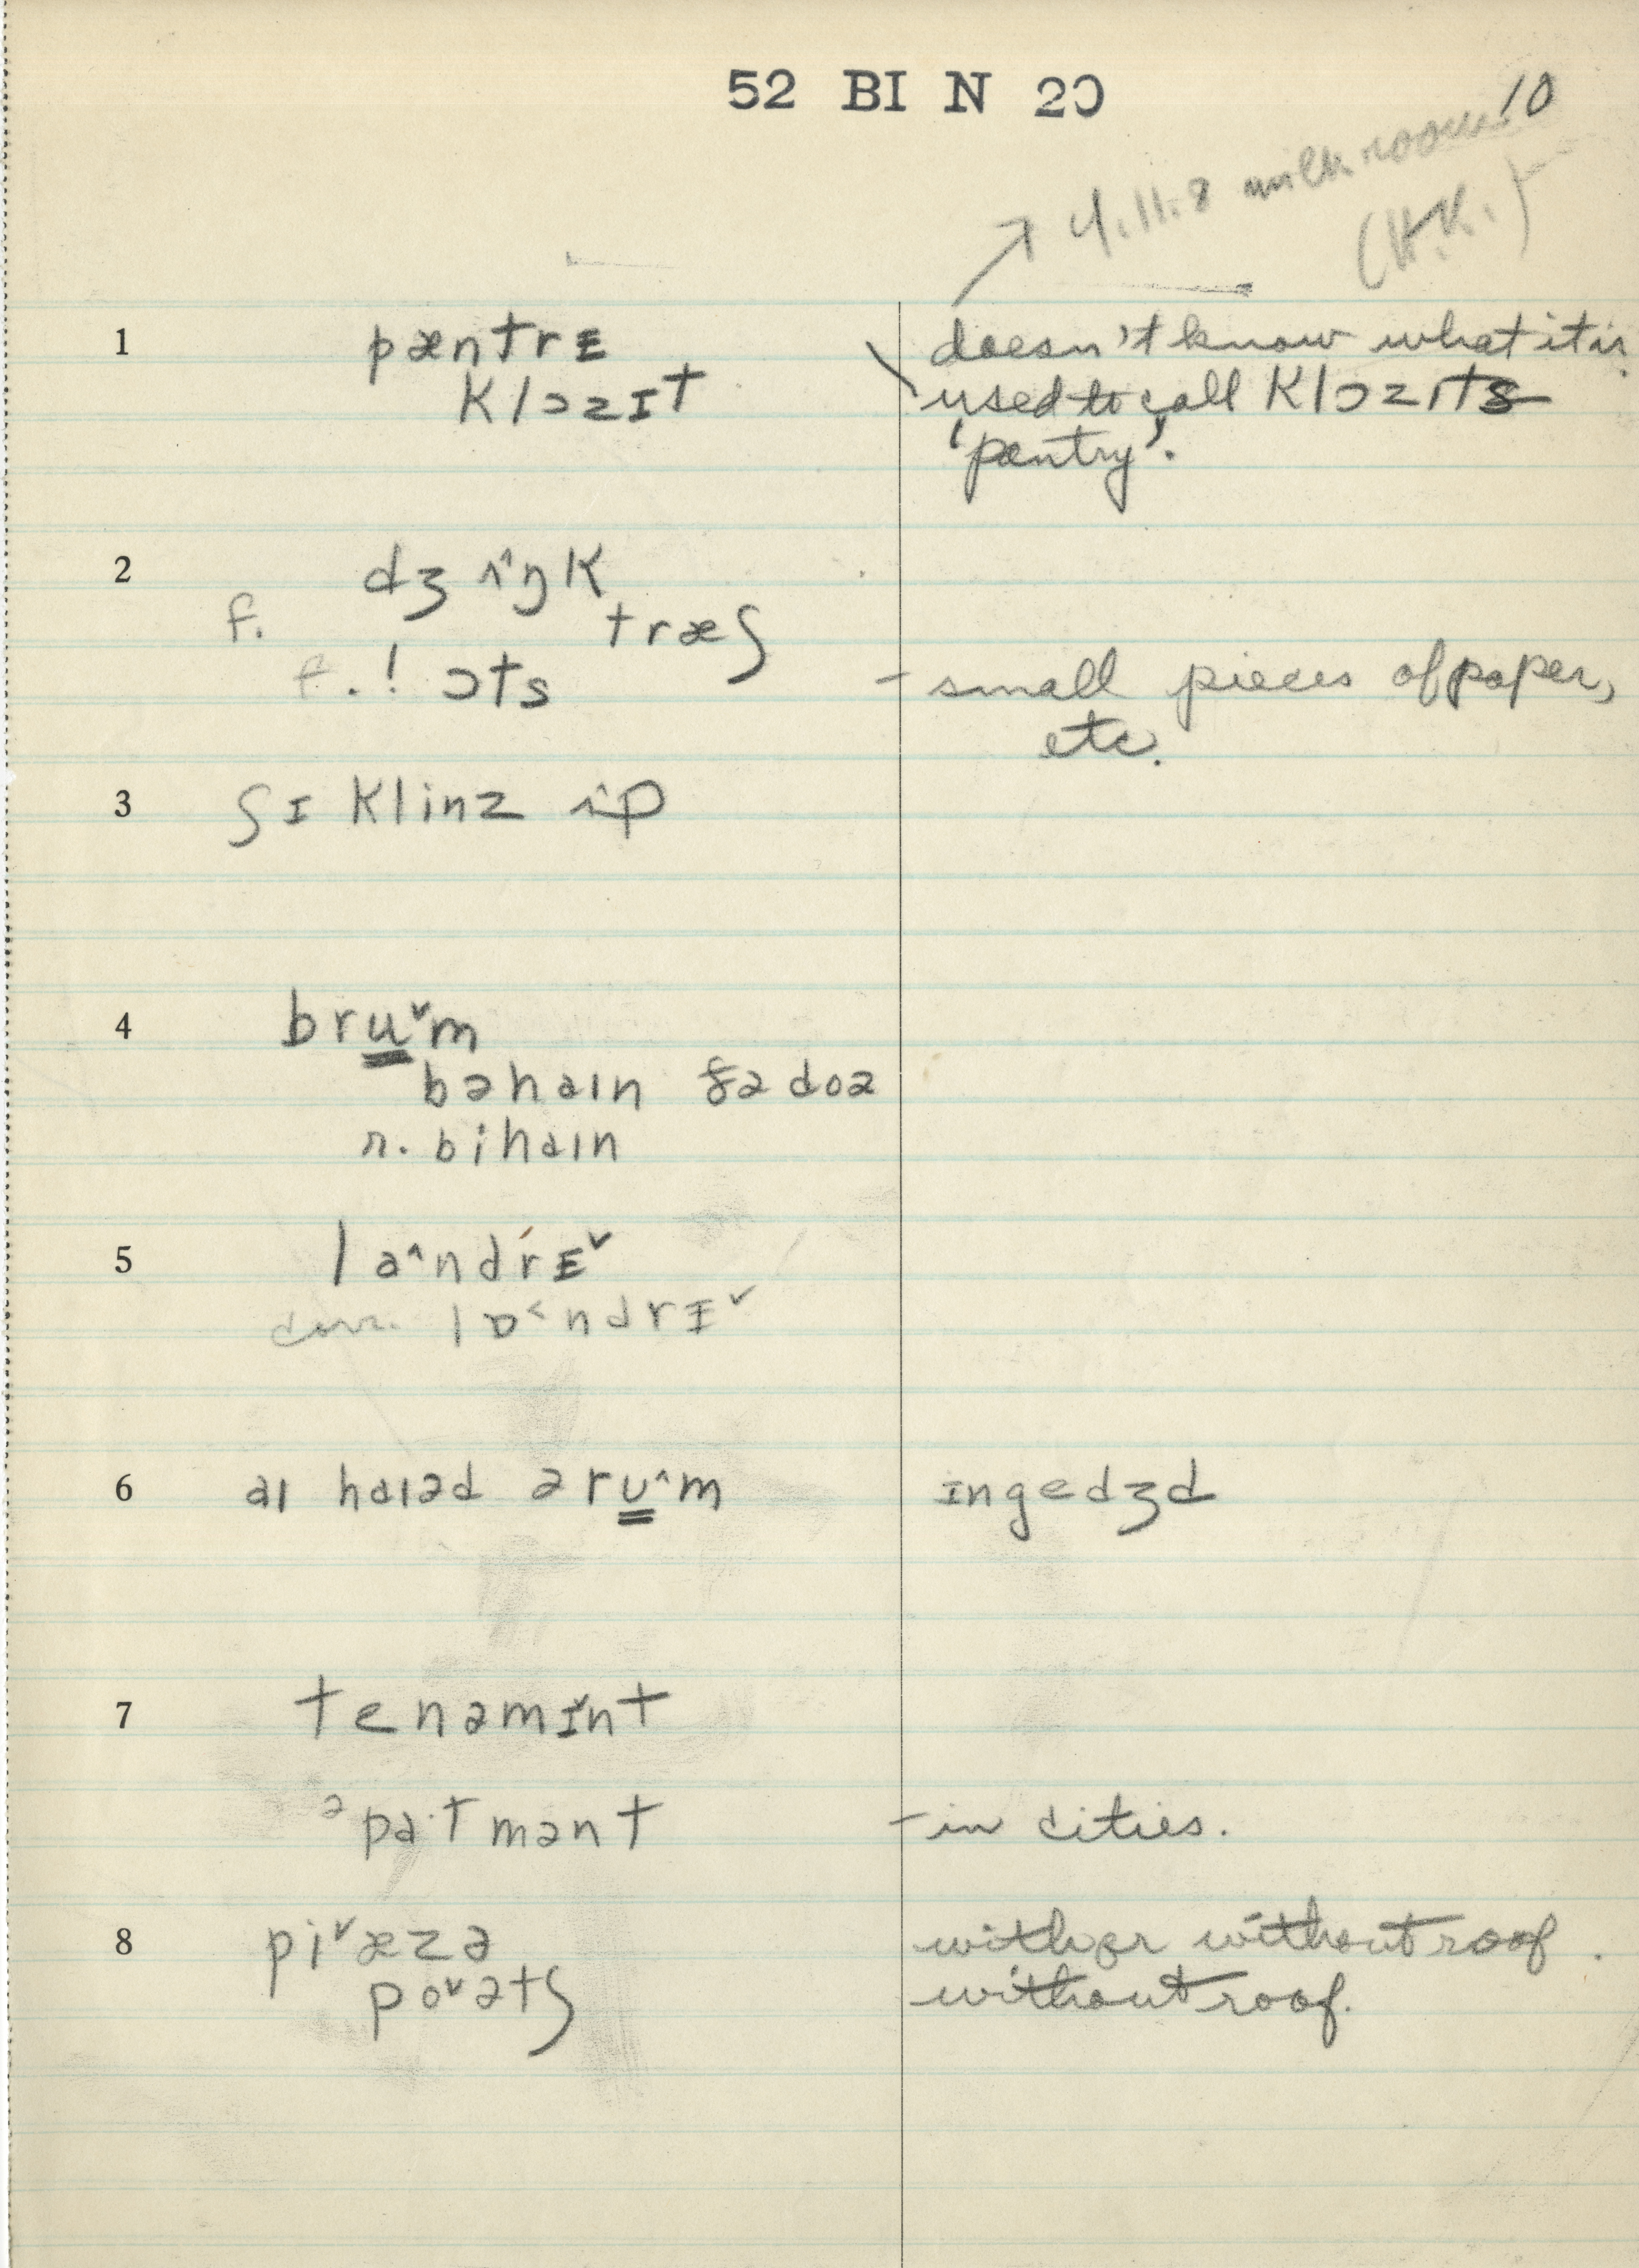 52 BI N 20
10
4.11.8 milk room
(H.K.)
1 pæntrᴇ doesn't know what it is.
klɔzɪt used to call klɔzɪts
'pantry'.
2 dʒʌ^ŋk
f. træʃ
f.! ɔts – small pieces of paper,
etc.
3 ʃɪ klinz ʌ^p
4 brᴜ̳ˇm
bəhaɪn ðə doə
r. bihaɪn
5 la^ndrᴇˇ
corr. lɒ˂ndrɪˇ
6 aɪ haɪəd ə rᴜ̳^m ɪngedʒd
7 tenəmɪˇnt
əpa·tmənt – in cities.
8 piˇæzə with or without roof.
poˇətʃ without roof.